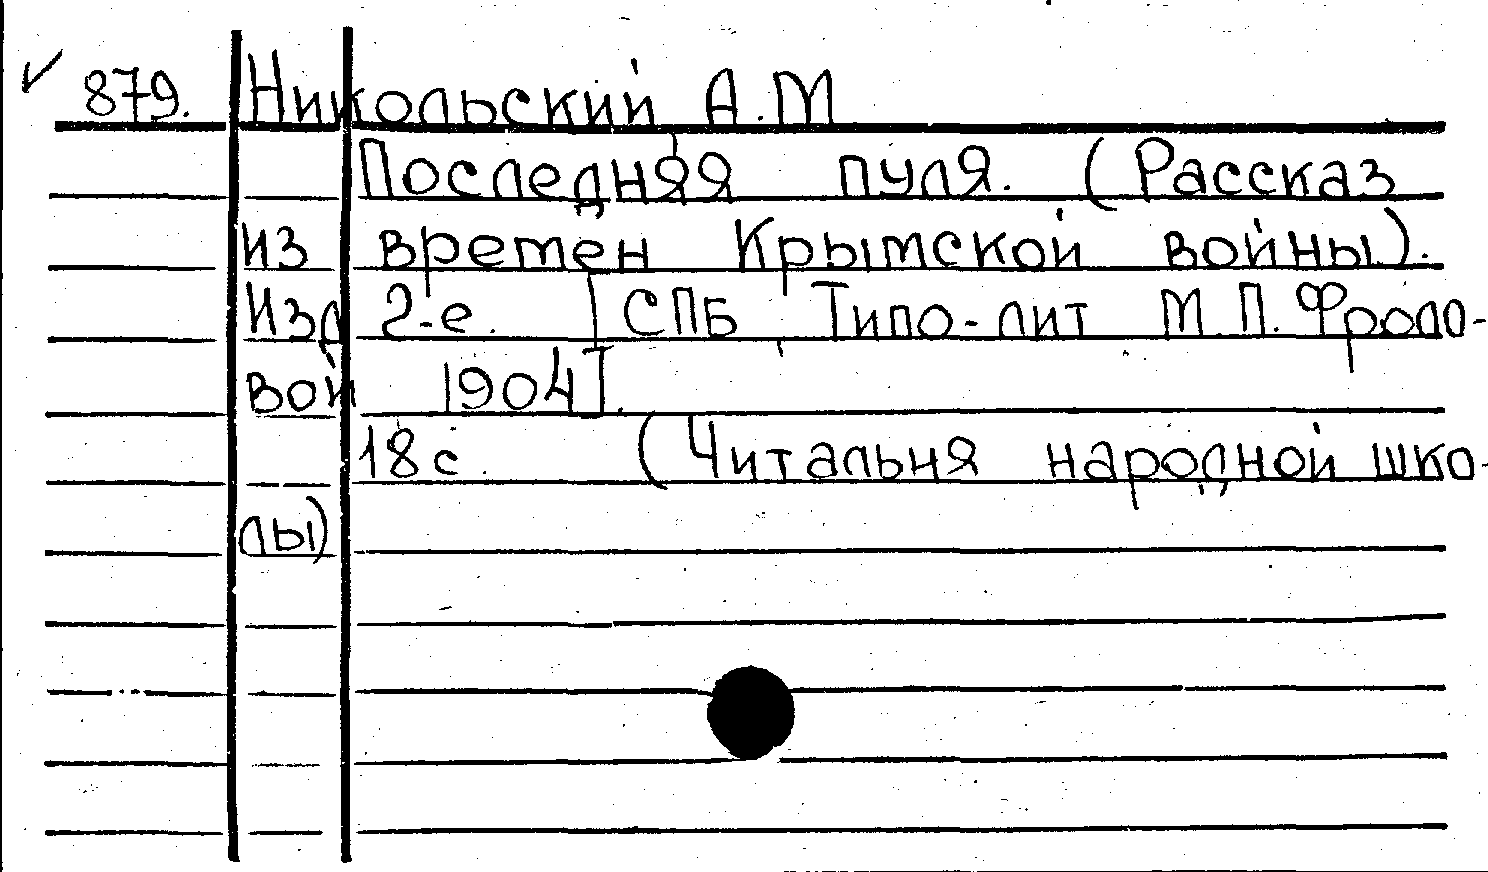 ✓ 879. Никольский А.М
Последняя пуля. (Рассказ
из времен Крымской войны).
Изд 2-е. [СПБ Типо-лит М.П. Фроло-
вой 1904].
18с. (Читальня народной шко-
лы)